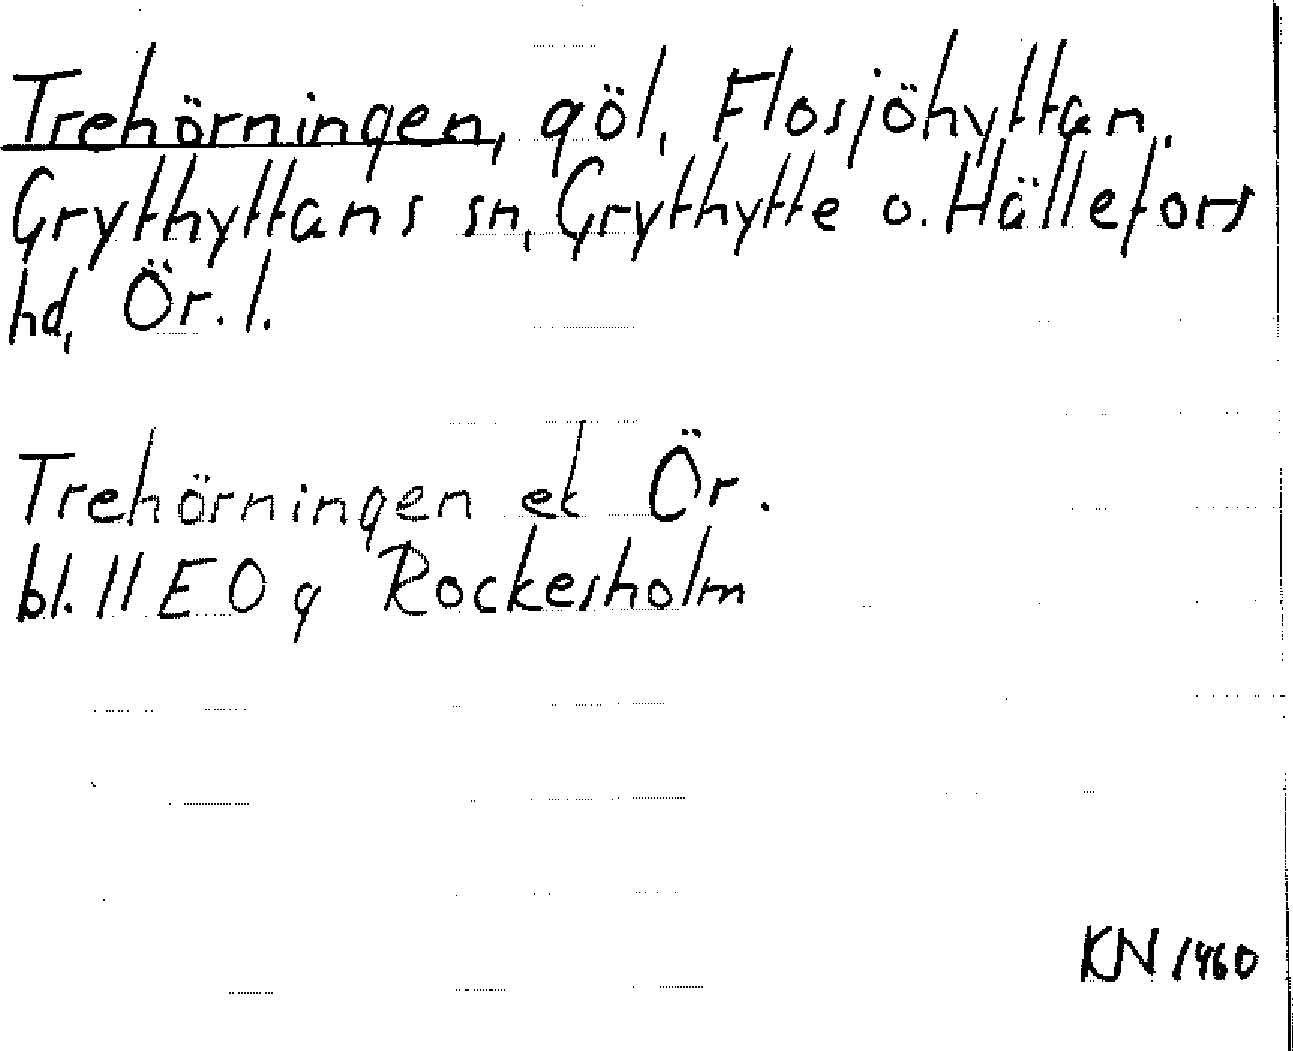 Trehörningen, göl, Flosjöhyttan,
Grythyttans sn, Grythytte o. Hällefors
hd, Ör. l.
Trehörningen ek Ör.
bl. 11 E O g Rockesholm
KN 1960